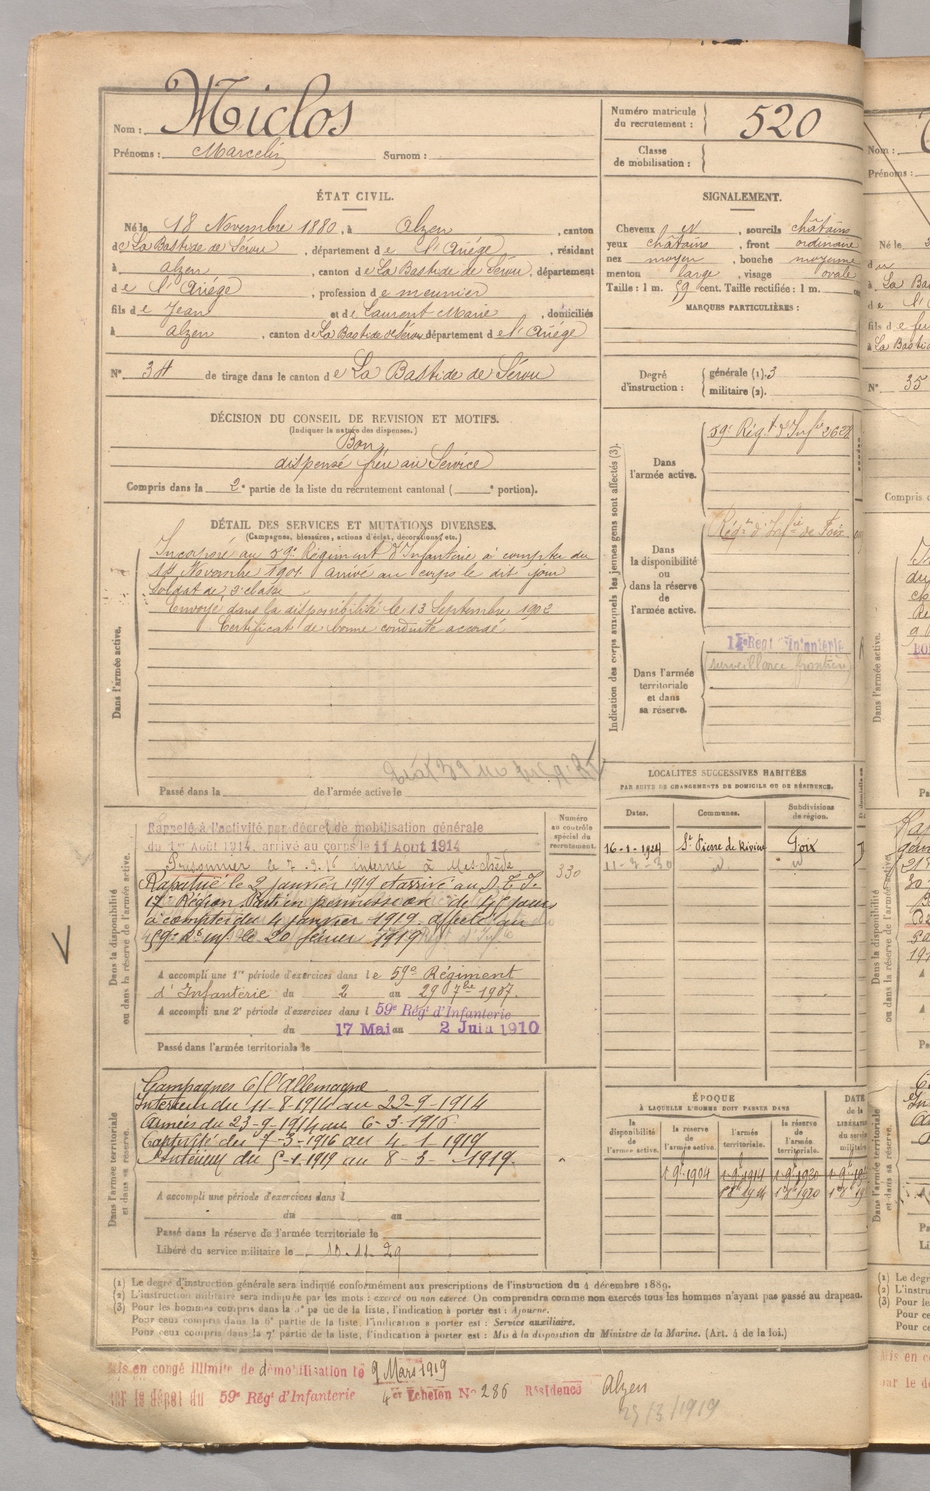 Nom : Miclos
Prénoms : Marcelin Surnom :
Numéro matricule du recrutement : 520
Classe de mobilisation :
ÉTAT CIVIL.
Né le 18 Novembre 1880, à Alzen, canton
de La Bastide de Sérou, département de l'Ariège, résidant
à Alzen, canton de La Bastide de Sérou, département
de l'Ariège, profession de meunier
fils de Jean et de Laurent Marie, domiciliés
à Alzen, canton de La Bastide de Sérou département de l'Ariège
N° 34 de tirage dans le canton de La Bastide de Sérou
DÉCISION DU CONSEIL DE REVISION ET MOTIFS.
(Indiquer la nature des dispenses.)
Bon
dispensé frère au Service
Compris dans la 2e partie de la liste du recrutement cantonal ( e portion).
DÉTAIL DES SERVICES ET MUTATIONS DIVERSES.
(Campagnes, blessures, actions d'éclat, décorations, etc.)
Dans l'armée active.
Incorporé au 59e Régiment d'Infanterie à compter du
Novembre 1901 arrivé au corps le dit jour
Soldat de 2e classe
Envoyé dans la disponibilité le 13 Septembre 1902
Certificat de bonne conduite accordé
Passé dans la de l'armée active le
Dans la disponibilité ou dans la réserve de l'armée active.
Numéro au contrôle spécial du recrutement.
330
Rappelé à l'activité par décret de mobilisation générale
du 1er Août 1914, arrivé au corps le 11 Aout 1914
Prisonnier le 7.3.16 interné à Meschède
Rapatrié le 2 janvier 1919 et arrivé au D.T.I.
17e Région Parti en permission de 45 jours
à compter du 4 janvier 1919 affecté au
59e R d'inf le 20 février 1919
A accompli une 1re période d'exercices dans le 59e Régiment
d'Infanterie du 2 au 29 7bre 1907.
A accompli une 2e période d'exercices dans l 59e Régt d'Infanterie
du 17 Mai au 2 Juin 1910
Passé dans l'armée territoriale le
Dans l'armée territoriale et dans sa réserve.
Campagnes C/ l'Allemagne
Intérieur du 11-8-1914 au 22-9-1914
Armées du 23-9-1914 au 6-3-1916
Captivité du 7-3-1916 au 4-1-1919
Intérieur du 5-1-1919 au 8-3-1919.
A accompli une période d'exercices dans l
du au
Passé dans la réserve de l'armée territoriale le
Libéré du service militaire le 10-11-29
SIGNALEMENT.
Cheveux et, sourcils châtains
yeux châtains, front ordinaire
nez moyen, bouche moyenne
menton large, visage ovale
Taille : 1 m. 59 cent. Taille rectifiée : 1 m.
MARQUES PARTICULIÈRES :
Degré d'instruction : générale (1). 3
militaire (2).
Indication des corps auxquels les jeunes gens sont affectés (3).
Dans l'armée active.
59e Régt d'Infie
Dans la disponibilité ou dans la réserve de l'armée active.
Régt d'Infie de Foix
Dans l'armée territoriale et dans sa réserve.
Regt Infanterie
surveillance frontière
LOCALITÉS SUCCESSIVES HABITÉES
PAR SUITE DE CHANGEMENTS DE DOMICILE OU DE RÉSIDENCE.
Dates. Communes. Subdivisions de région.
16-1-1924 St Pierre de Rivière Foix
11-3-30 d° d°
ÉPOQUE
À LAQUELLE L'HOMME DOIT PASSER DANS
la disponibilité de l'armée active. la réserve de l'armée active. l'armée territoriale. la réserve de l'armée territoriale.
DATE de la LIBÉRATION du service militaire
(1) Le degré d'instruction générale sera indiqué conformément aux prescriptions de l'instruction du 4 décembre 1889.
(2) L'instruction militaire sera indiquée par les mots : exercé ou non exercé. On comprendra comme non exercés tous les hommes n'ayant pas passé au drapeau.
(3) Pour les hommes compris dans la 5e partie de la liste, l'indication à porter est : Ajourné.
Pour ceux compris dans la 6e partie de la liste, l'indication à porter est : Service auxiliaire.
Pour ceux compris dans la 7e partie de la liste, l'indication à porter est : Mis à la disposition du Ministre de la Marine. (Art. 4 de la loi.)
Mis en congé illimité de démobilisation le 9 Mars 1919
par le dépôt du 59e Régt d'Infanterie 4e Echelon N° 286 Résidence Alzen
23/3/1919